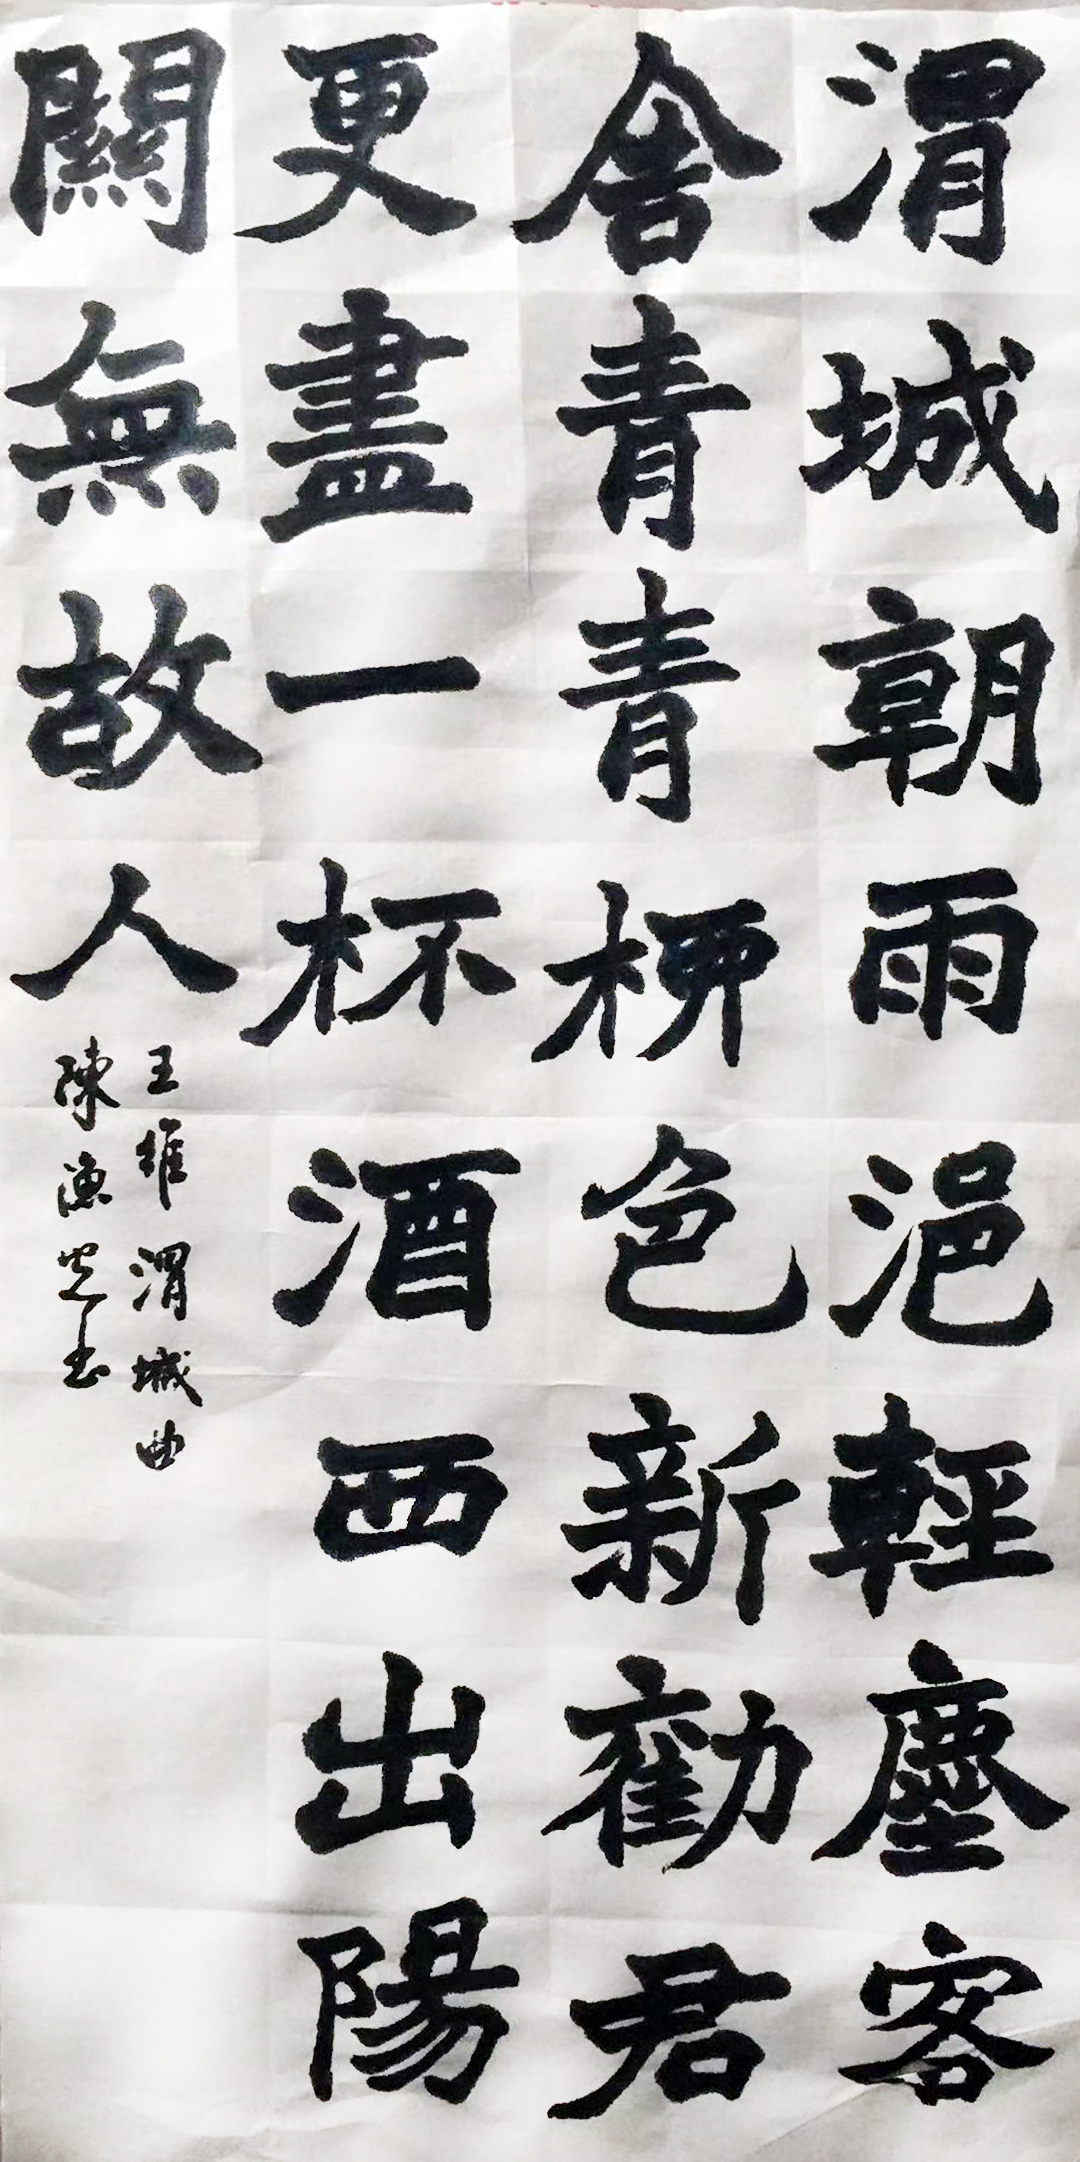 渭城朝雨浥輕塵客
舍青青柳色新勸君
更盡一杯酒西出陽
關無故人
王維渭城曲
陳漁光書